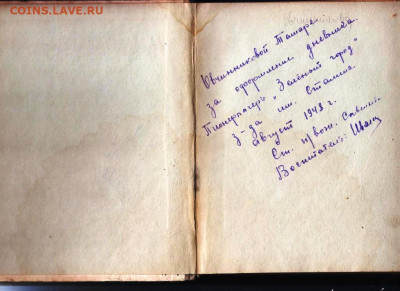 COINS.LAVE.RU
Овчинниковой Тамаре
за оформление дневника.
Пионерлагерь "Зеленый город"
з-да им. Сталина
Август 1948 г.
Ст. п/вож.
Воспитат: